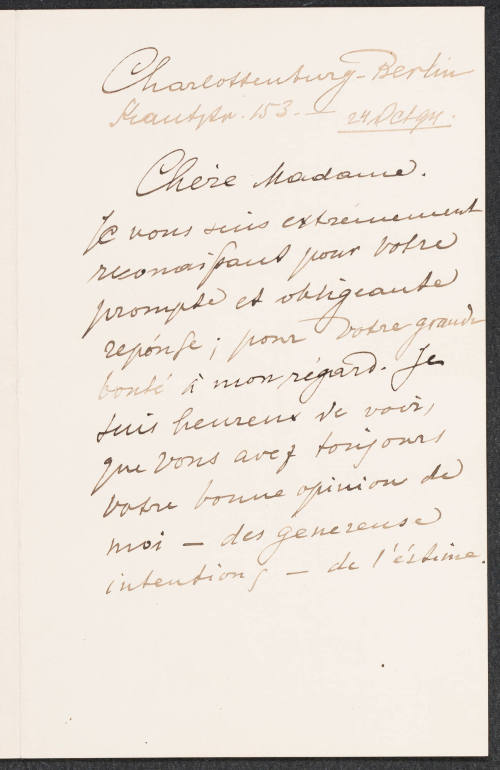 Charlottenburg-Berlin
Kantstr. 153. — 24 Oct 94.
Chère Madame.
Je vous suis extrémement
reconaissant pour votre
prompte et obligeante
repónse; pour votre grande
bonté à mon régard. Je
suis heureux de voir,
que vous avez toujours
votre bonne opinion de
moi — des genereuse
intentions — de l'éstime.